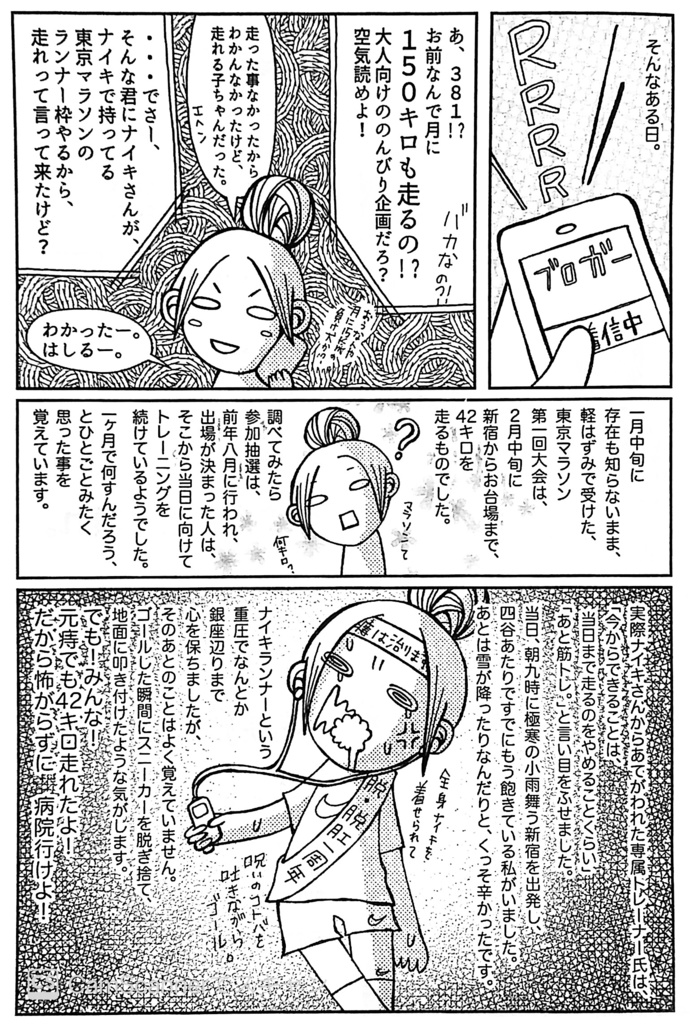 そんなある日。
RRRR
ブロガー
着信中
あ、381!?
お前なんで月に
150キロも走るの!?
大人向けののんびり企画だろ?
空気読めよ!
バカなの?!
走った事なかったから
わかんなかったけど、
走れる子ちゃんだった。
エヘン
・・・でさー、
そんな君にナイキさんが、
ナイキで持ってる
東京マラソンの
ランナー枠やるから、
走れって言って来たけど?
わかったー。
はしるー。
一月中旬に
存在も知らないまま、
軽はずみで受けた、
東京マラソン
第一回大会は、
2月中旬に
新宿からお台場まで、
42キロを
走るものでした。
?
マラソンて
何キロ?
調べてみたら
参加抽選は、
前年八月に行われ、
出場が決まった人は、
そこから当日に向けて
トレーニングを
続けているようでした。
一ヶ月で何すんだろう、
とひとごとみたく
思った事を
覚えています。
実際ナイキさんからあてがわれた専属トレーナー氏は、
「今からできることは、
当日まで走るのをやめることくらい」
「あと筋トレ。」と言い目をふせました。
当日、朝九時に極寒の小雨舞う新宿を出発し、
四谷あたりですでにもう飽きている私がいました。
あとは雪が降ったりなんだりと、くっそ辛かったです。
痔は治ります
全身ナイキを
着せられて
脱・脱肛一周年
呪いのコトバを
吐きながら
ゴール。
ナイキランナーという
重圧でなんとか
銀座辺りまで
心を保ちましたが、
そのあとのことはよく覚えていません。
ゴールした瞬間にスニーカーを脱ぎ捨て、
地面に叩き付けたような気がします。
でも!みんな!
元痔でも42キロ走れたよ!
だから怖がらずに病院行けよ!